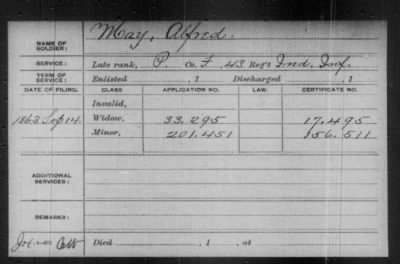 NAME OF SOLDIER: May, Alfred.
SERVICE: Late rank, P. Co. F, 43 Reg't Ind. Inf.
TERM OF SERVICE: Enlisted , 1 Discharged , 1
DATE OF FILING. CLASS APPLICATION NO. LAW. CERTIFICATE NO.
Invalid,
1863 Sep 14. Widow, 33.295 17.495
Minor, 201.451 156.511
ADDITIONAL SERVICES:
REMARKS:
Died , 1 , at